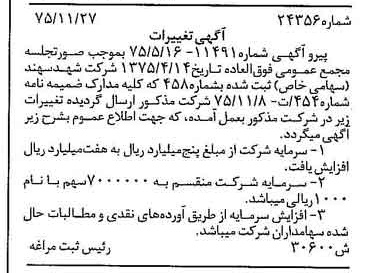 شماره۲۴۳۵۶ ۷۵/۱۱/۲۷
آگهی تغییرات
پیرو آگهی شماره۱۱۴۹۱- ۷۵/۵/۱۶ بموجب صورتجلسه
مجمع عمومی فوق‌العاده تاریخ۱۳۷۵/۴/۱۴ شرکت شهدسهند
(سهامی خاص) ثبت شده بشماره۴۵۸ که کلیه مدارک ضمیمه نامه
شماره۴۵۴/ت- ۷۵/۱۱/۸ شرکت مذکور ارسال گردیده تغییرات
زیر در شرکت مذکور بعمل آمده، که جهت اطلاع عموم بشرح زیر
آگهی میگردد.
۱- سرمایه شرکت از مبلغ پنج‌میلیارد ریال به هفت‌میلیارد ریال
افزایش یافت.
۲- سرمایه شرکت منقسم به ۷۰۰۰۰۰۰سهم با نام
۱۰۰۰ریالی میباشد.
۳- افزایش سرمایه از طریق آورده‌های نقدی و مطالبات حال
شده سهامداران شرکت میباشد.
ش۳۰۶۰۰ رئیس ثبت مراغه